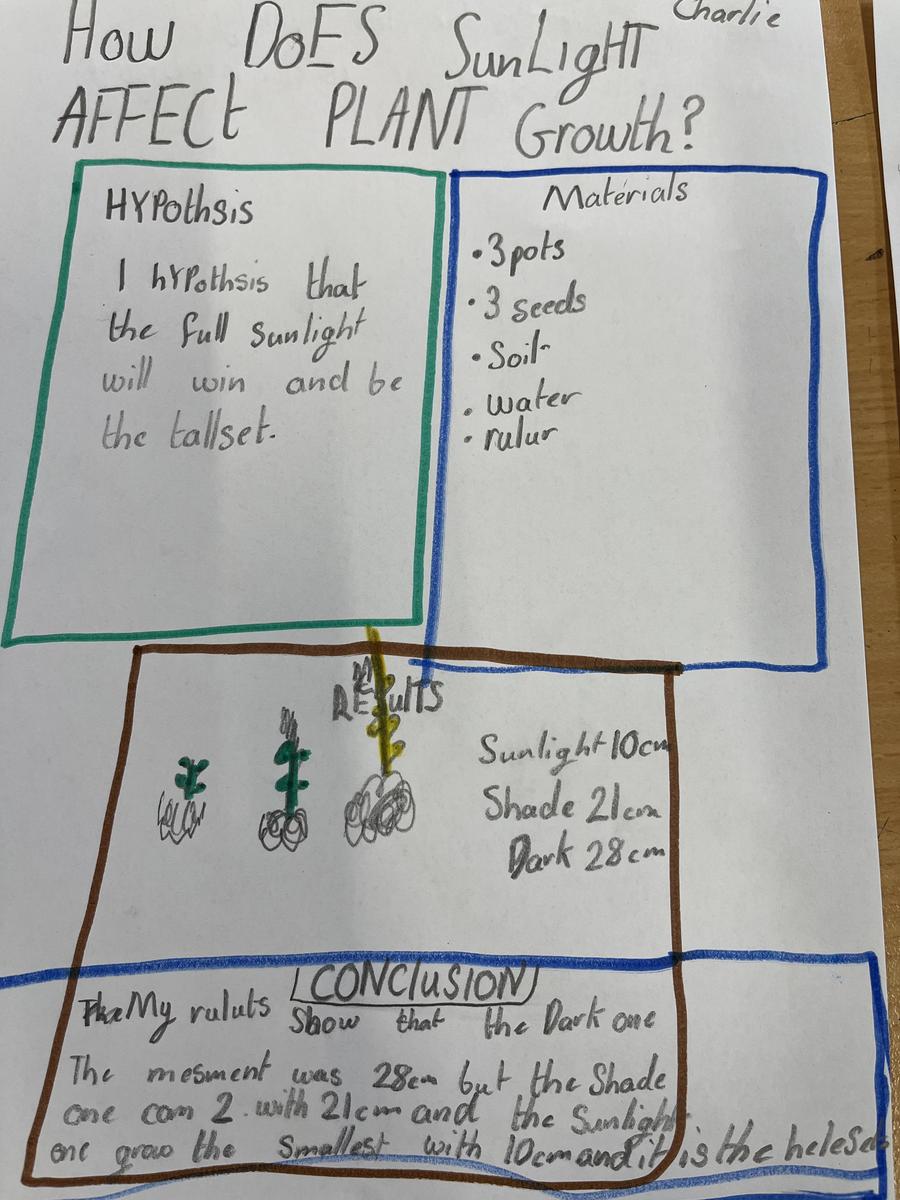 Charlie
How DoES SunLigHT
AFFECt PLANT Growth?
HYPothsis
I hYPothsis that
the full sunlight
will win and be
the tallset.
Materials
• 3 pots
• 3 seeds
• Soil
• water
• rulur
RESulTS
Sunlight 10cm
Shade 21cm
Dark 28cm
CONClusION
My ruluts Show that the Dark one
The mesment was 28cm but the Shade
one com 2. with 21cm and the Sunlight
one grow the smallest with 10cm and it is the